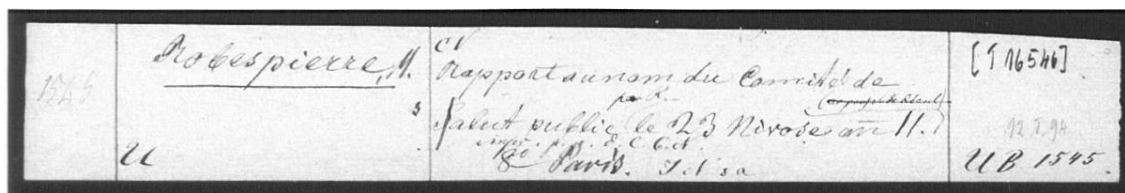 1545
Robespierre, M.
CN
Rapport au nom du Comité de
Salut public, le 23 Nivose an II.
par R.
Paris. I. d. s a
s
U
[T 16546]
12.I.94
UB 1545.